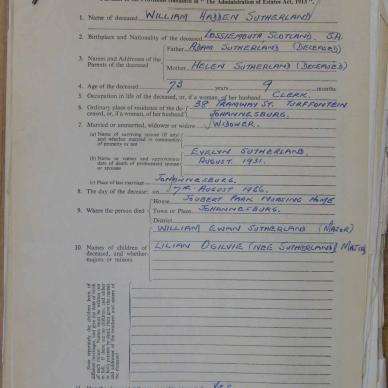 Pursuant to the Provisions contained in "The Administration of Estates Act, 1913"
1. Name of deceased WILLIAM HADDEN SUTHERLAND
2. Birthplace and Nationality of the deceased LOSSIEMOUTH SCOTLAND. S.A.
3. Names and Addresses of the Parents of the deceased
Father, ADAM SUTHERLAND (DECEASED)
Mother, HELEN SUTHERLAND (DECEASED)
4. Age of the deceased 73 years 9 months
5. Occupation in life of the deceased, or, if a woman, of her husband CLERK.
6. Ordinary place of residence of the deceased, or, if a woman, of her husband
38 TRAMWAY ST. TURFFONTEIN
JOHANNESBURG.
7. Married or unmarried, widower or widow WIDOWER.
(a) Name of surviving spouse (if any) and whether married in community of property or not
(b) Name or names and approximate date of death of predeceased spouse or spouses
EVELYN SUTHERLAND
AUGUST 1931.
(c) Place of last marriage JOHANNESBURG.
8. The day of the decease: on 7TH AUGUST 1956.
9. Where the person died
House JOUBERT PARK NURSING HOME
Town or Place JOHANNESBURG.
District
10. Names of children of deceased, and whether majors or minors
WILLIAM EWAN SUTHERLAND (MAJOR)
LILIAN OGILVIE (NEE SUTHERLAND) MAJOR